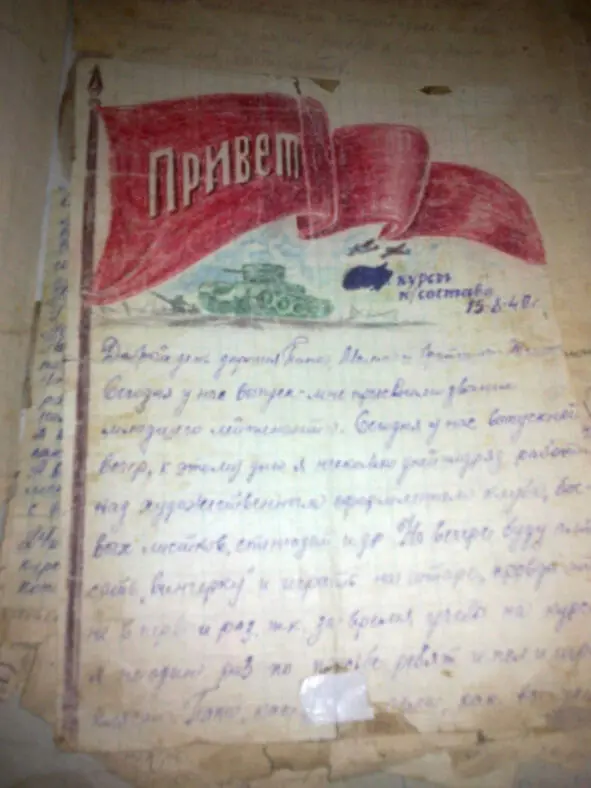 ПРИВЕТ
курсы
к/состава
15-8-40 г.
Добрый день дорогие Папа, Мама и
Сегодня у нас выпуск - мне присвоили звание
младшего лейтенанта. Сегодня у нас выпускной
вечер, к этому дню я несколько дней подряд работал
над художественным оформлением клуба, бое-
вых листков, стенгазет и др. На вечере буду пля-
сать "венгерку" и играть на гитаре, правда
не в первый раз, т.к. за время учебы на курсах
я не один раз по просьбе ребят и пел и
плясал. Папа, как